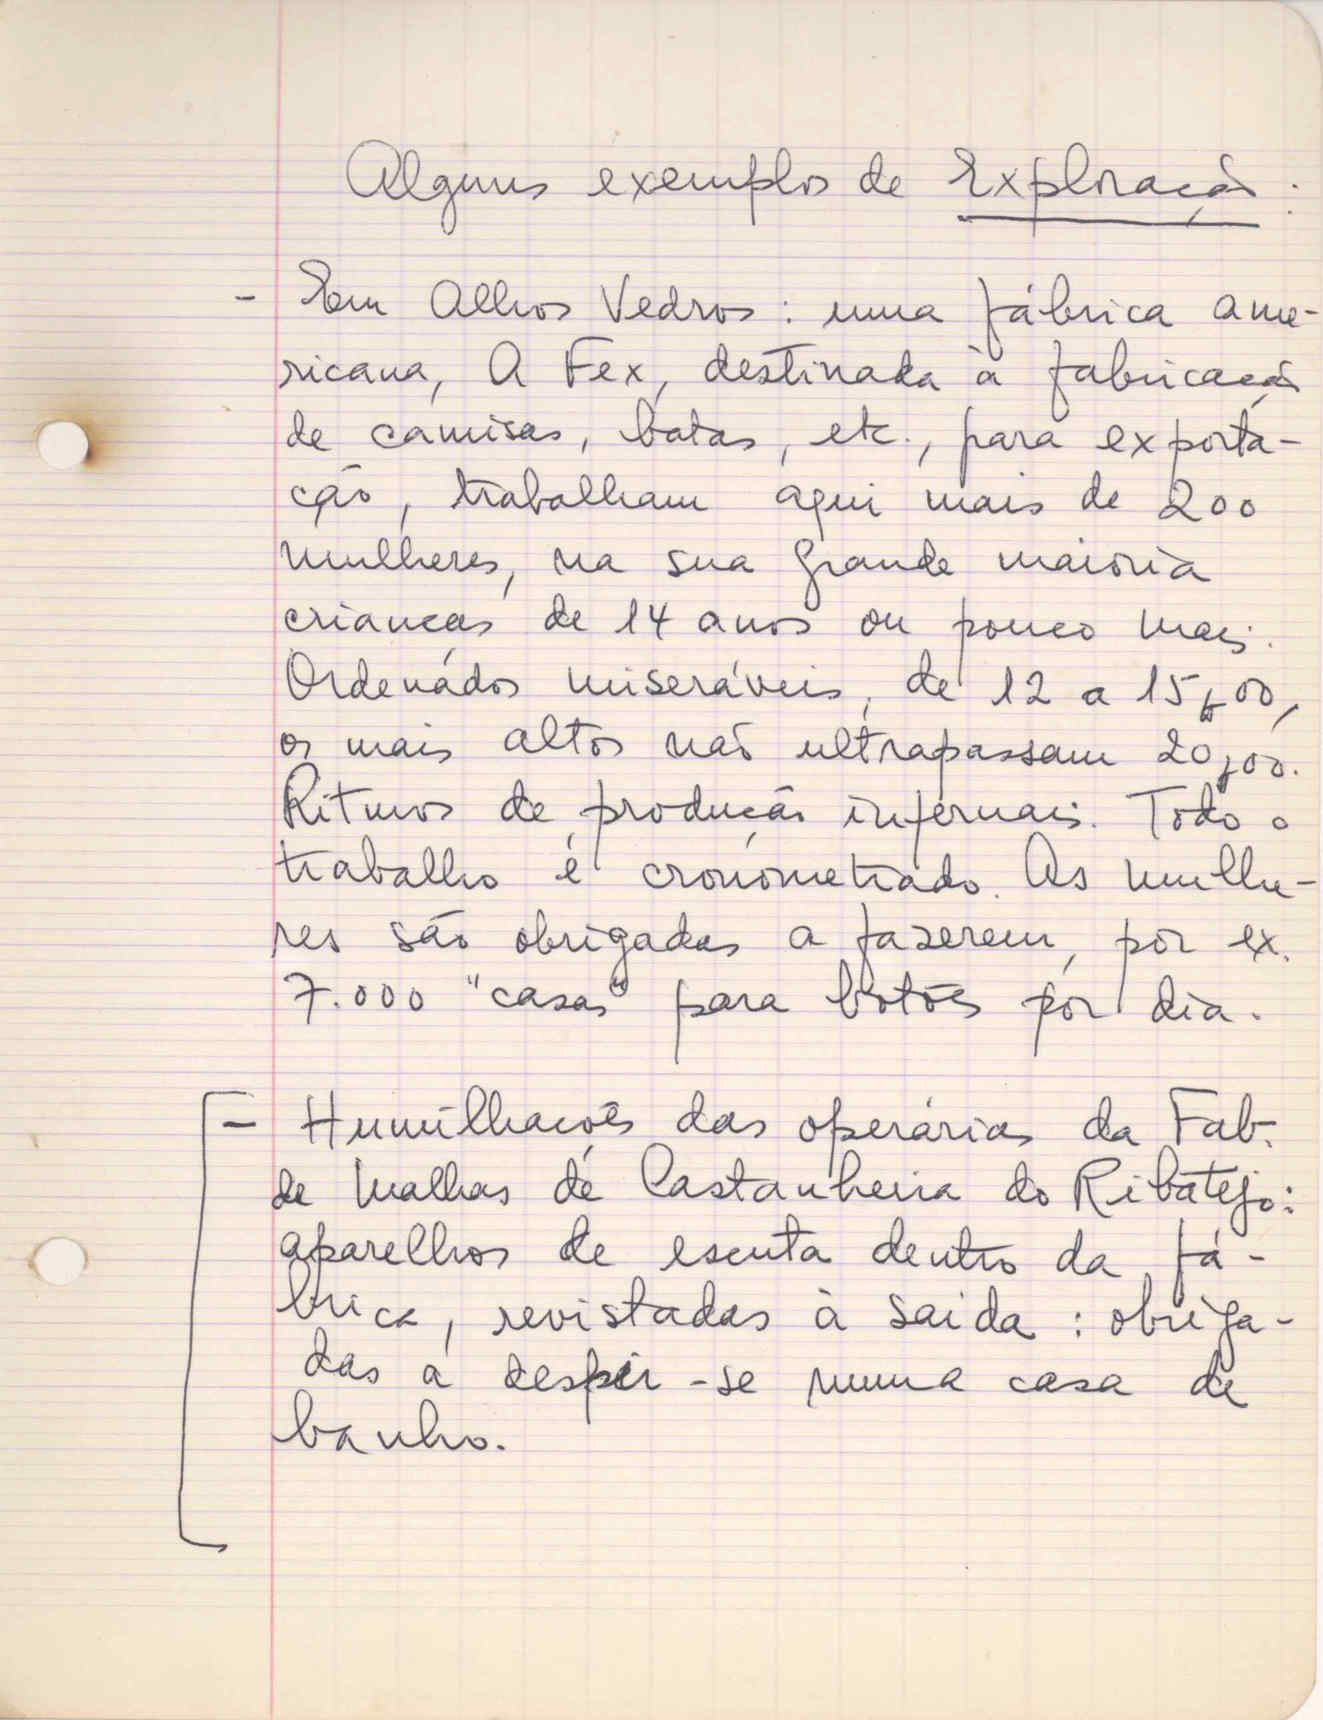 Alguns exemplos de Exploração:
- Em Alhos Vedros: uma fábrica ame-
ricana, A Fex, destinada à fabricação
de camisas, batas, etc., para exporta-
ção, trabalham aqui mais de 200
mulheres, na sua grande maioria
crianças de 14 anos ou pouco mais.
Ordenados miseráveis, de 12 a 15$00,
os mais altos não ultrapassam 20$00.
Ritmos de produção infernais. Todo o
trabalho é cronometrado. As mulhe-
res são obrigadas a fazerem, por ex.
7.000 "casas" para botões por dia.
- Humilhações das operárias da Fab.
de Malhas de Castanheira do Ribatejo:
aparelhos de escuta dentro da fá-
brica, revistadas à saída: obriga-
das a despir-se numa casa de
banho.